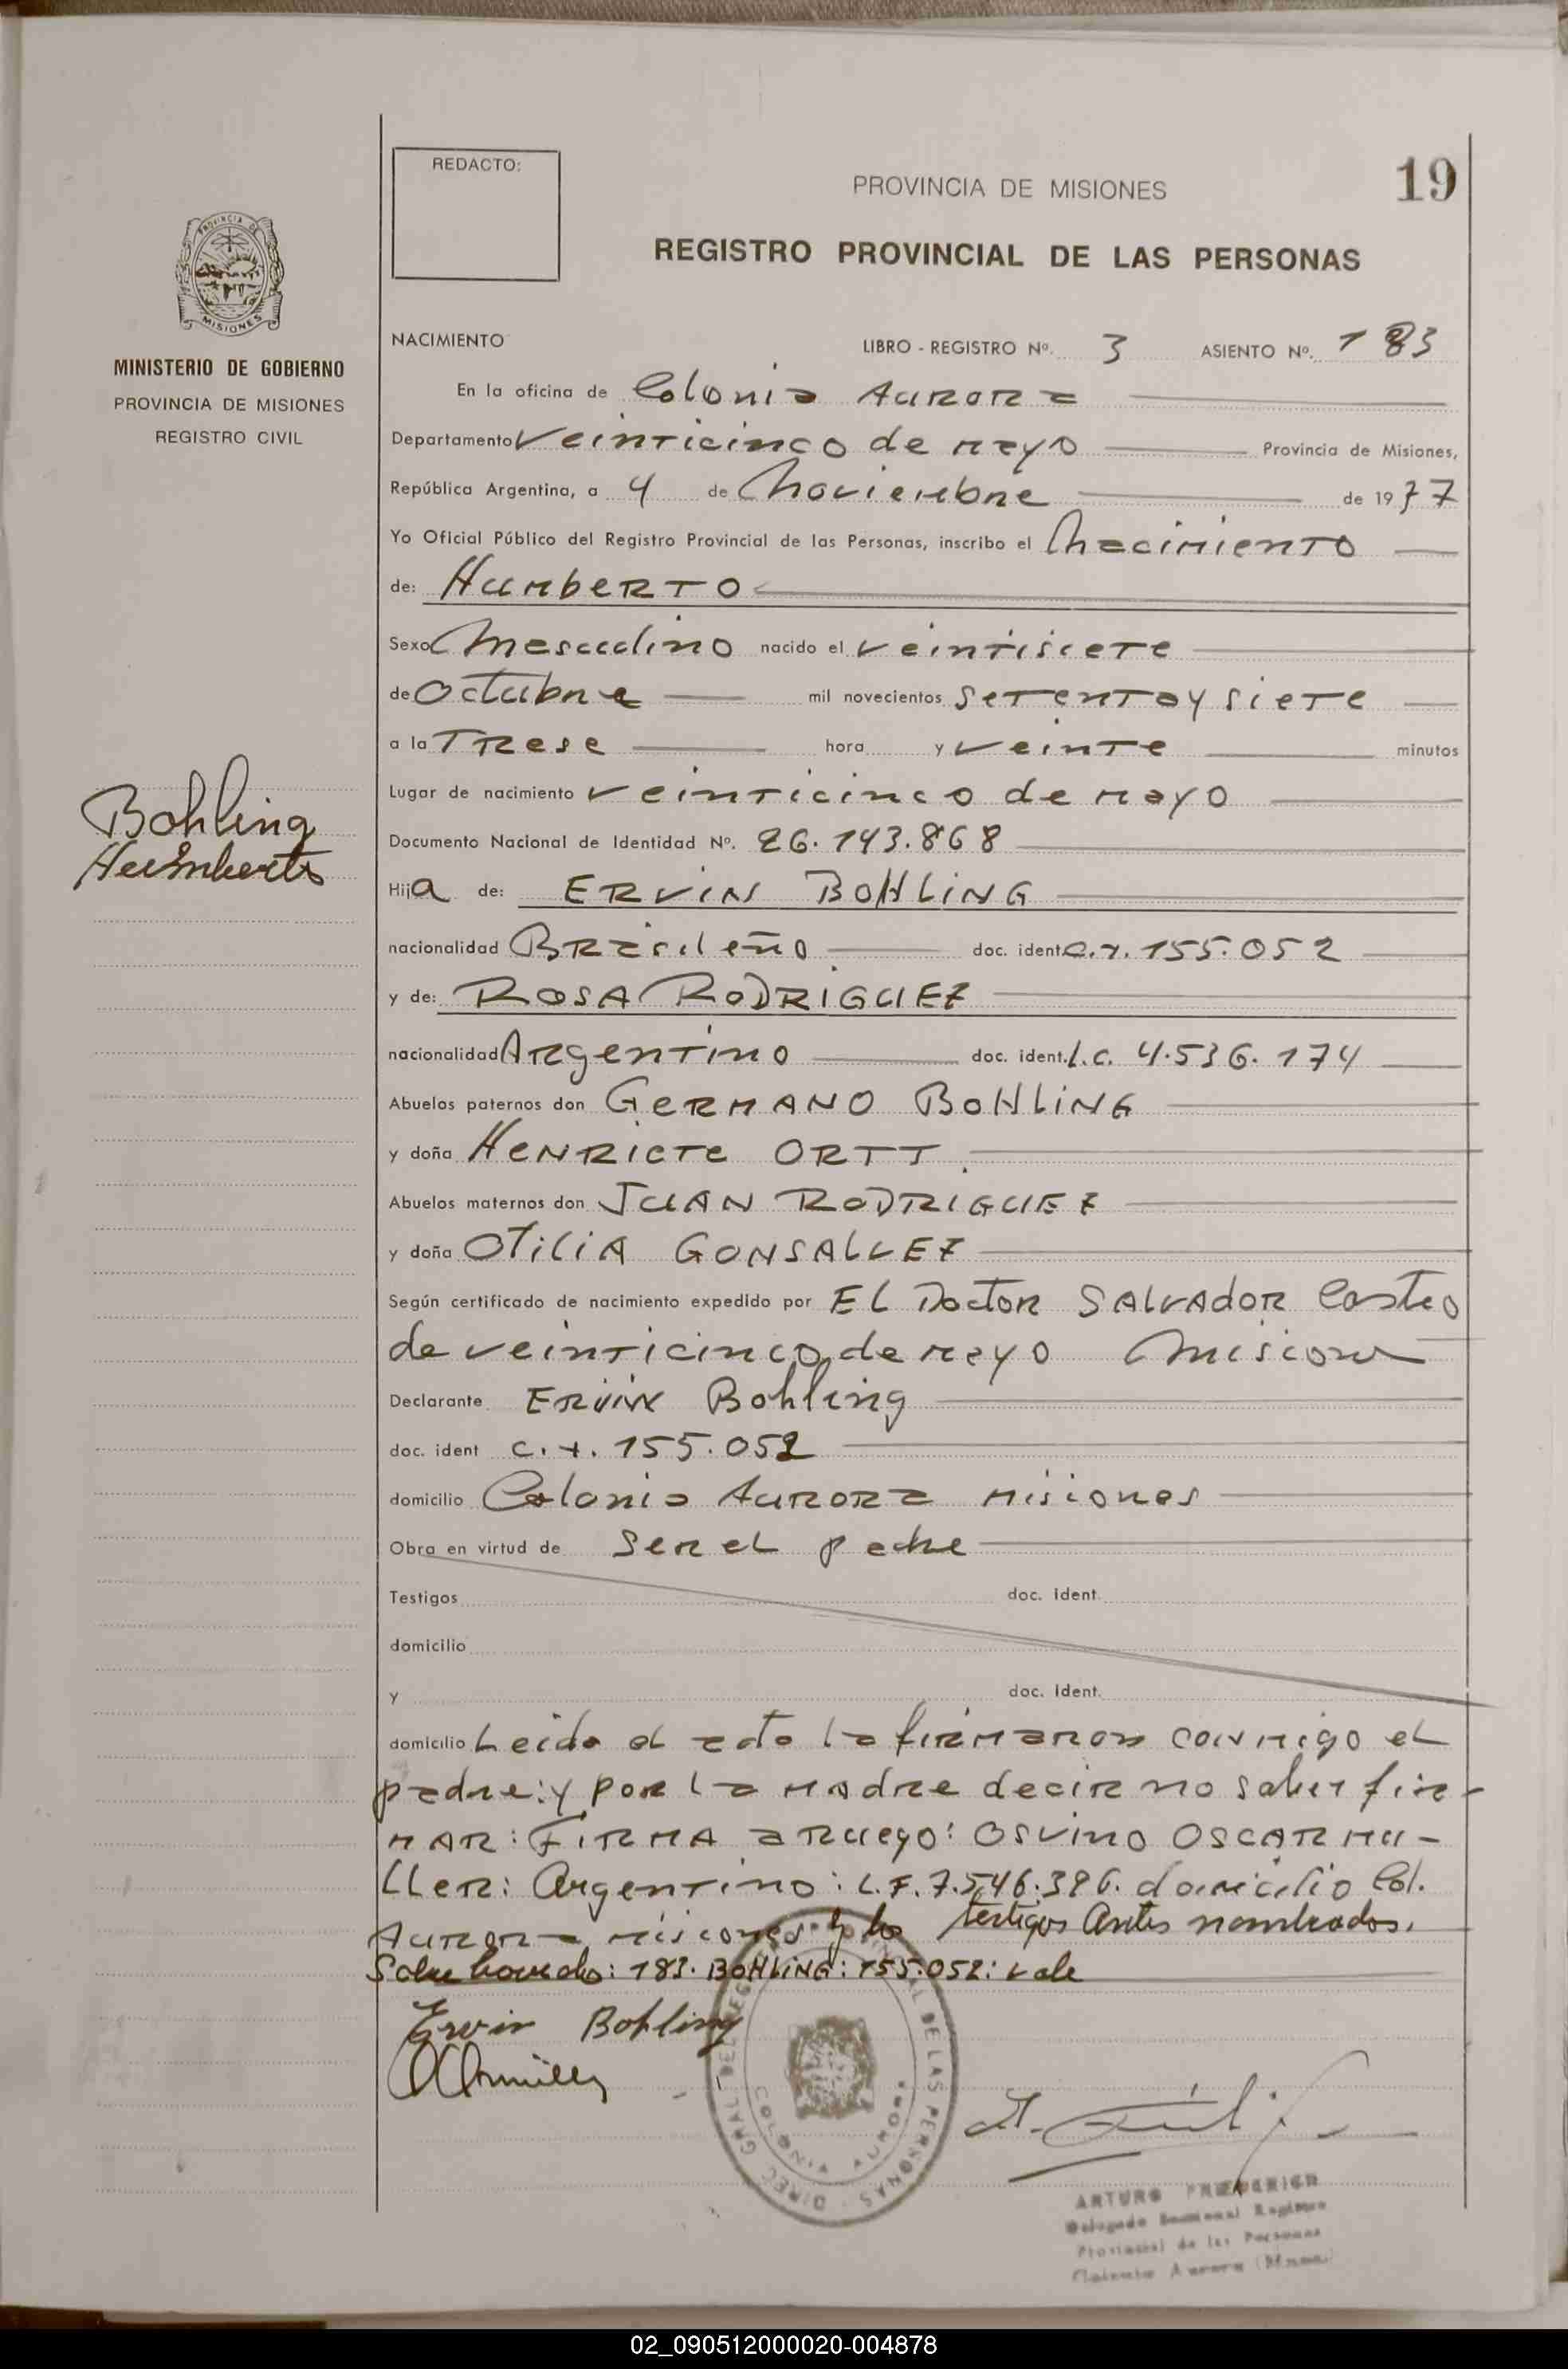 REDACTO:
PROVINCIA DE MISIONES
19
REGISTRO PROVINCIAL DE LAS PERSONAS
PROVINCIA DE
MISIONES
MINISTERIO DE GOBIERNO
PROVINCIA DE MISIONES
REGISTRO CIVIL
NACIMIENTO LIBRO - REGISTRO Nº. 3 ASIENTO Nº. 183
En la oficina de Colonia Aurora
Departamento Veinticinco de mayo Provincia de Misiones,
República Argentina, a 4 de Noviembre de 1977
Yo Oficial Público del Registro Provincial de las Personas, inscribo el Nacimiento
de: Humberto
Sexo Masculino nacido el veintisiete
de Octubre mil novecientos setenta y siete
a la Trese hora y veinte minutos
Lugar de nacimiento veinticinco de mayo
Bohling
Humberto
Documento Nacional de Identidad Nº. 26.143.868
Hija de: ERVIN BOHLING
nacionalidad Brasileño doc. ident. 155.052
y de: ROSA RODRIGUEZ
nacionalidad Argentino doc. ident. L.C. 4.536.174
Abuelos paternos don GERMANO BOHLING
y doña HENRIETE ORTT
Abuelos maternos don JUAN RODRIGUEZ
y doña OTILIA GONSALVEZ
Según certificado de nacimiento expedido por EL Doctor SALVADOR Castro
de veinticinco de mayo Misiones
Declarante Ervin Bohling
doc. ident 155.052
domicilio Colonia Aurora Misiones
Obra en virtud de ser el padre
Testigos doc. ident.
domicilio
y doc. ident.
domicilio Leida el acta la firmaron conmigo el
padre: y por la madre decir no saber fir-
mar: FIRMA a ruego: OSVINO OSCAR MU-
LLER: Argentino: 7.546.396. domicilio Col.
Aurora misiones y los testigos Antes nombrados.
Sobre borrado: 183. BOHLING: 155.052: vale
Ervin Bohling
DIREC. GRAL. DEL REG. PROVINCIAL DE LAS PERSONAS
COLONIA AURORA
ARTURO FREDERICH
Delegado Seccional Registro
Provincial de las Personas
Colonia Aurora (Mnes.)
02_090512000020-004878